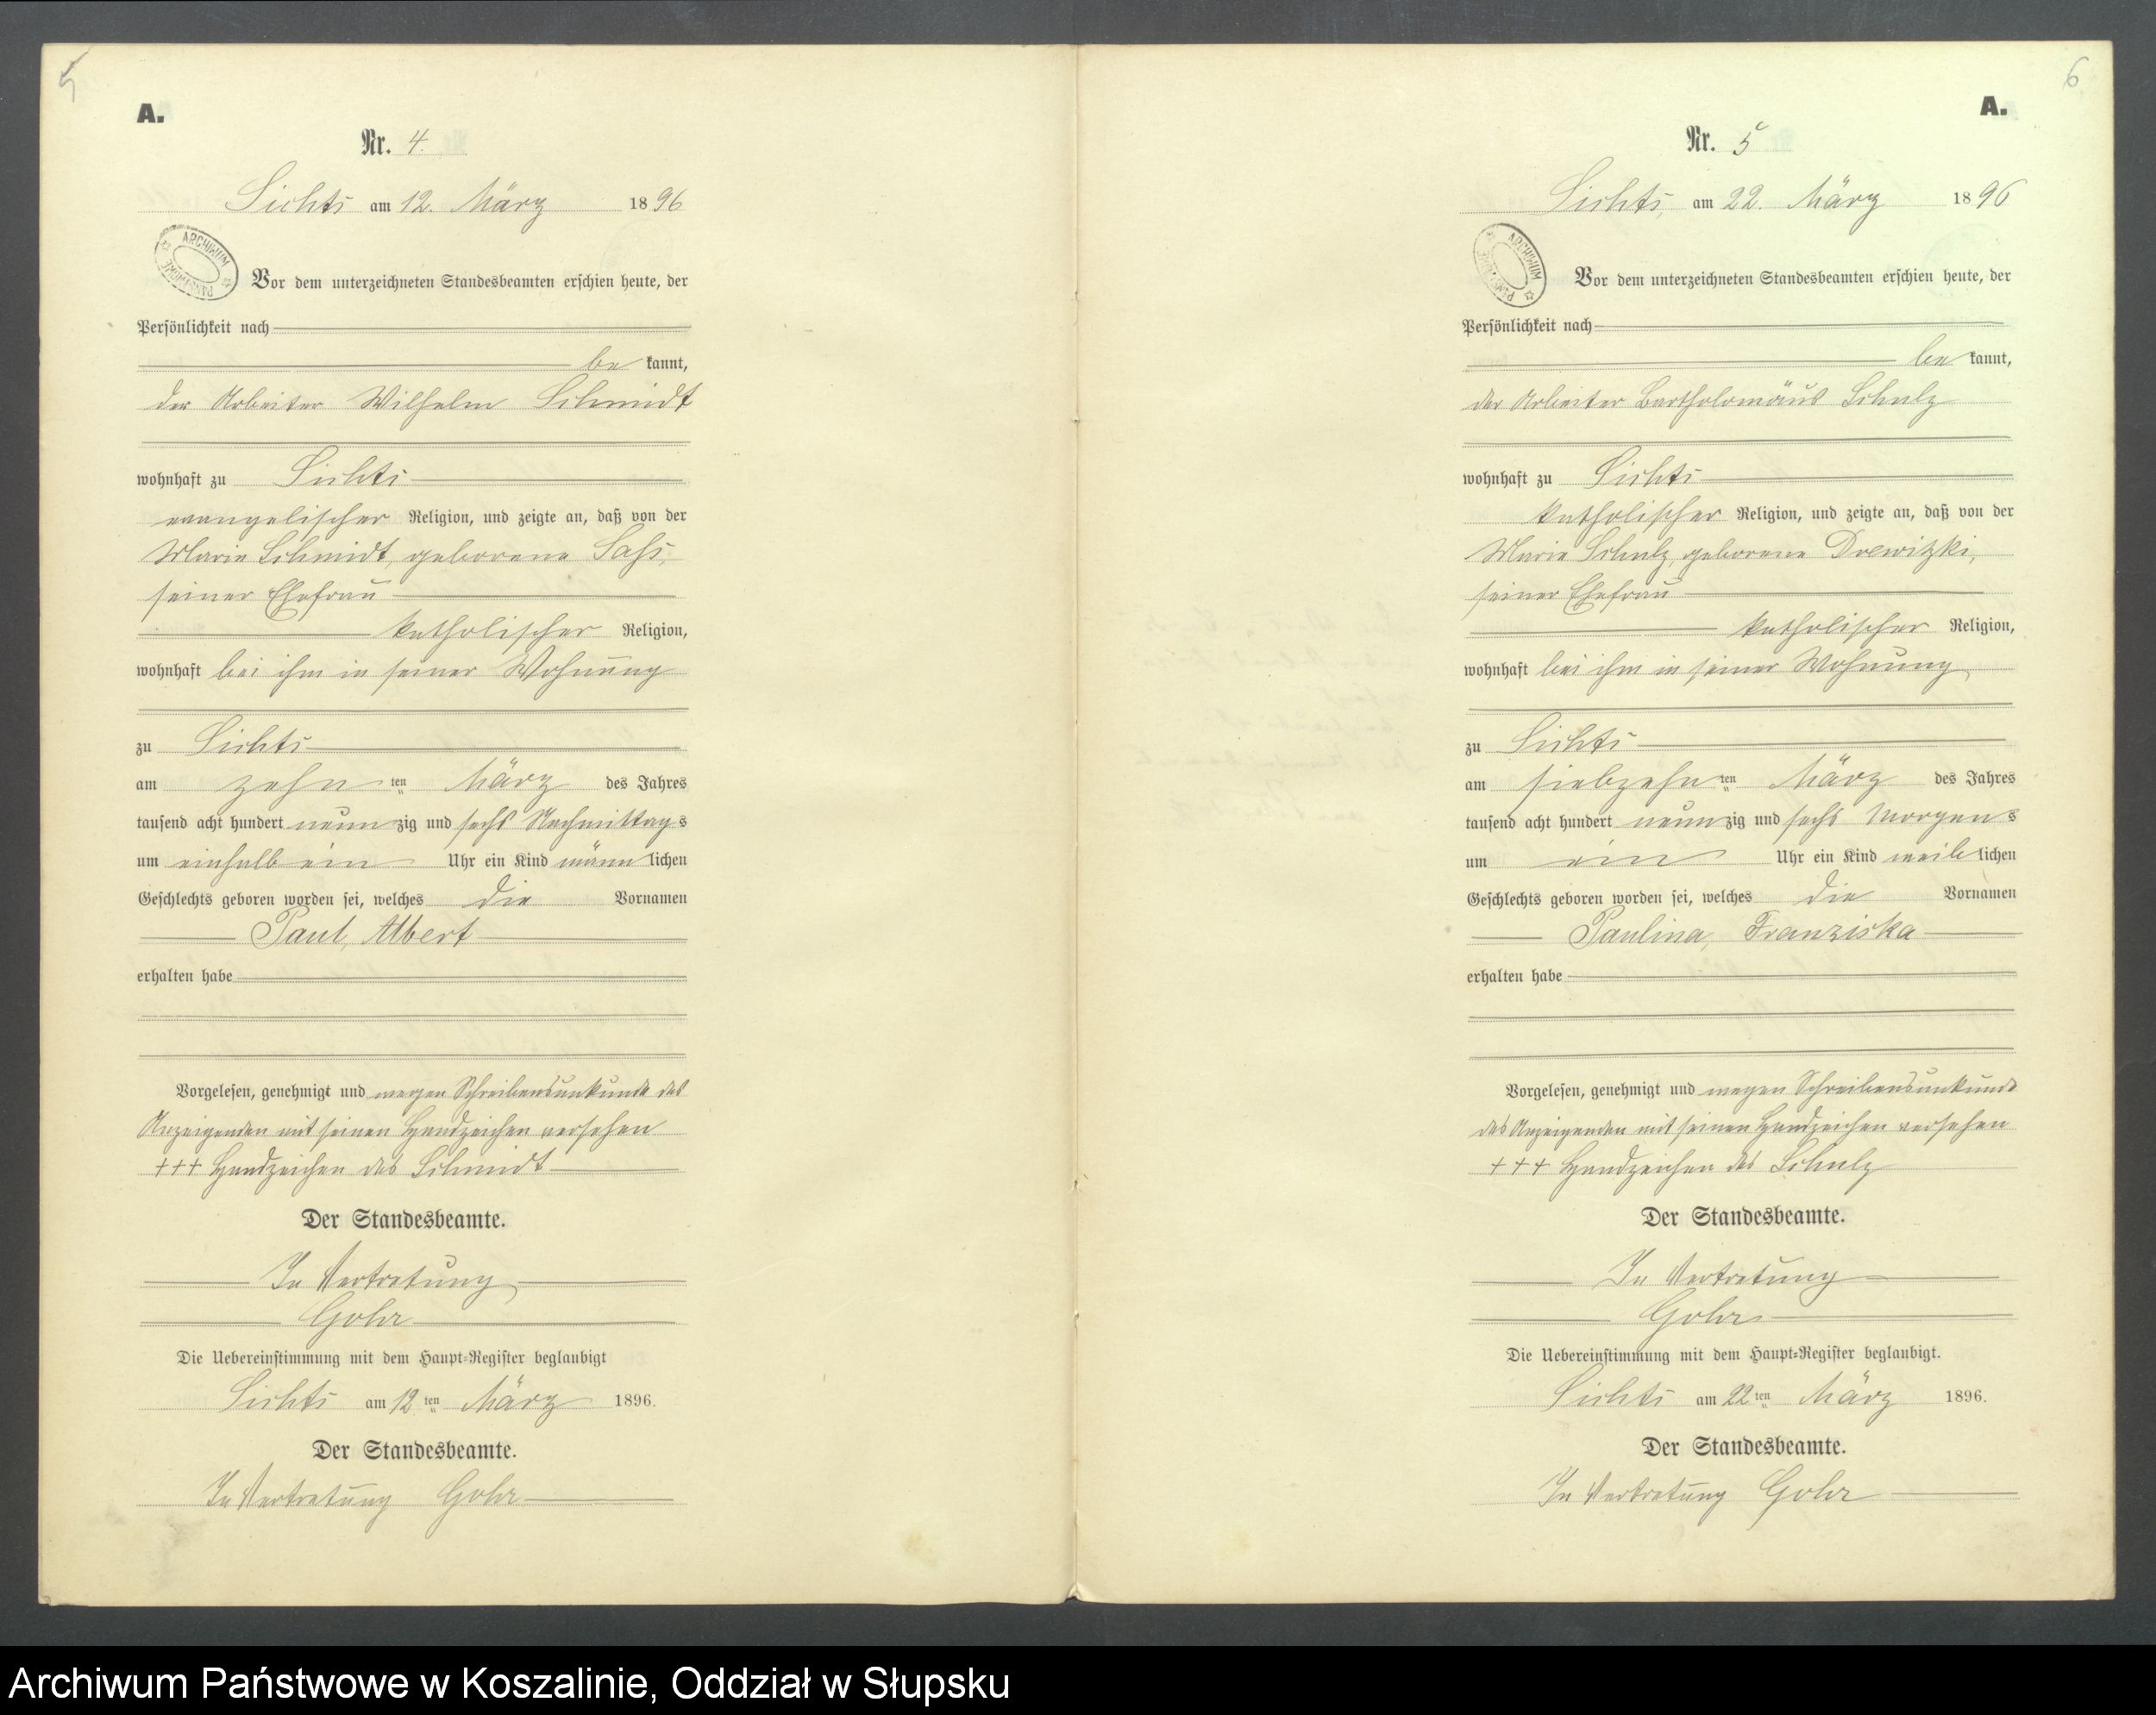 5
A.
Nr. 4.
Sichts am 12. März 1896
ARCHIWUM PAŃSTWOWE
Vor dem unterzeichneten Standesbeamten erschien heute, der
Persönlichkeit nach
be kannt,
der Arbeiter Wilhelm Schmidt
wohnhaft zu Sichts
evangelischer Religion, und zeigte an, daß von der
Marie Schmidt, geborene Sass,
seiner Ehefrau
katholischer Religion,
wohnhaft bei ihm in seiner Wohnung
zu Sichts
am zehn ten März des Jahres
tausend acht hundert neun zig und sechs Nachmittags
um einhalb ein Uhr ein Kind männ lichen
Geschlechts geboren worden sei, welches die Vornamen
Paul, Albert
erhalten habe
Vorgelesen, genehmigt und wegen Schreibensunkunde des
Anzeigenden mit seinen Handzeichen versehen
+++ Handzeichen des Schmidt
Der Standesbeamte.
In Vertretung
Gohr
Die Uebereinstimmung mit dem Haupt-Register beglaubigt
Sichts am 12 ten März 1896.
Der Standesbeamte.
In Vertretung Gohr
6
A.
Nr. 5
Sichts, am 22. März 1896
ARCHIWUM PAŃSTWOWE
Vor dem unterzeichneten Standesbeamten erschien heute, der
Persönlichkeit nach
be kannt,
der Arbeiter Bartholomäus Schulz
wohnhaft zu Sichts
katholischer Religion, und zeigte an, daß von der
Marie Schulz, geborene Drewitzki,
seiner Ehefrau
katholischer Religion,
wohnhaft bei ihm in seiner Wohnung
zu Sichts
am siebzehn ten März des Jahres
tausend acht hundert neun zig und sechs Morgens
um ein Uhr ein Kind weib lichen
Geschlechts geboren worden sei, welches die Vornamen
Paulina, Franziska
erhalten habe
Vorgelesen, genehmigt und wegen Schreibensunkunde
des Anzeigenden mit seinen Handzeichen versehen
+++ Handzeichen des Schulz
Der Standesbeamte.
In Vertretung
Gohr
Die Uebereinstimmung mit dem Haupt-Register beglaubigt.
Sichts am 22 ten März 1896.
Der Standesbeamte.
In Vertretung Gohr
Archiwum Państwowe w Koszalinie, Oddział w Słupsku